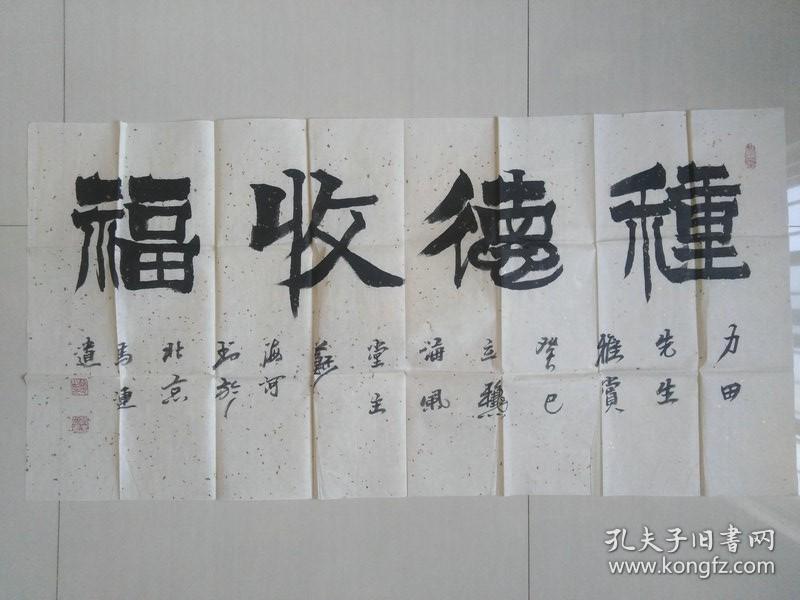 種德收福
力田
先生
雅賞
癸巳
立龝
海佩
堂主
蘇
海河
書於
北京
馬連
道
孔夫子旧书网
www.kongfz.com